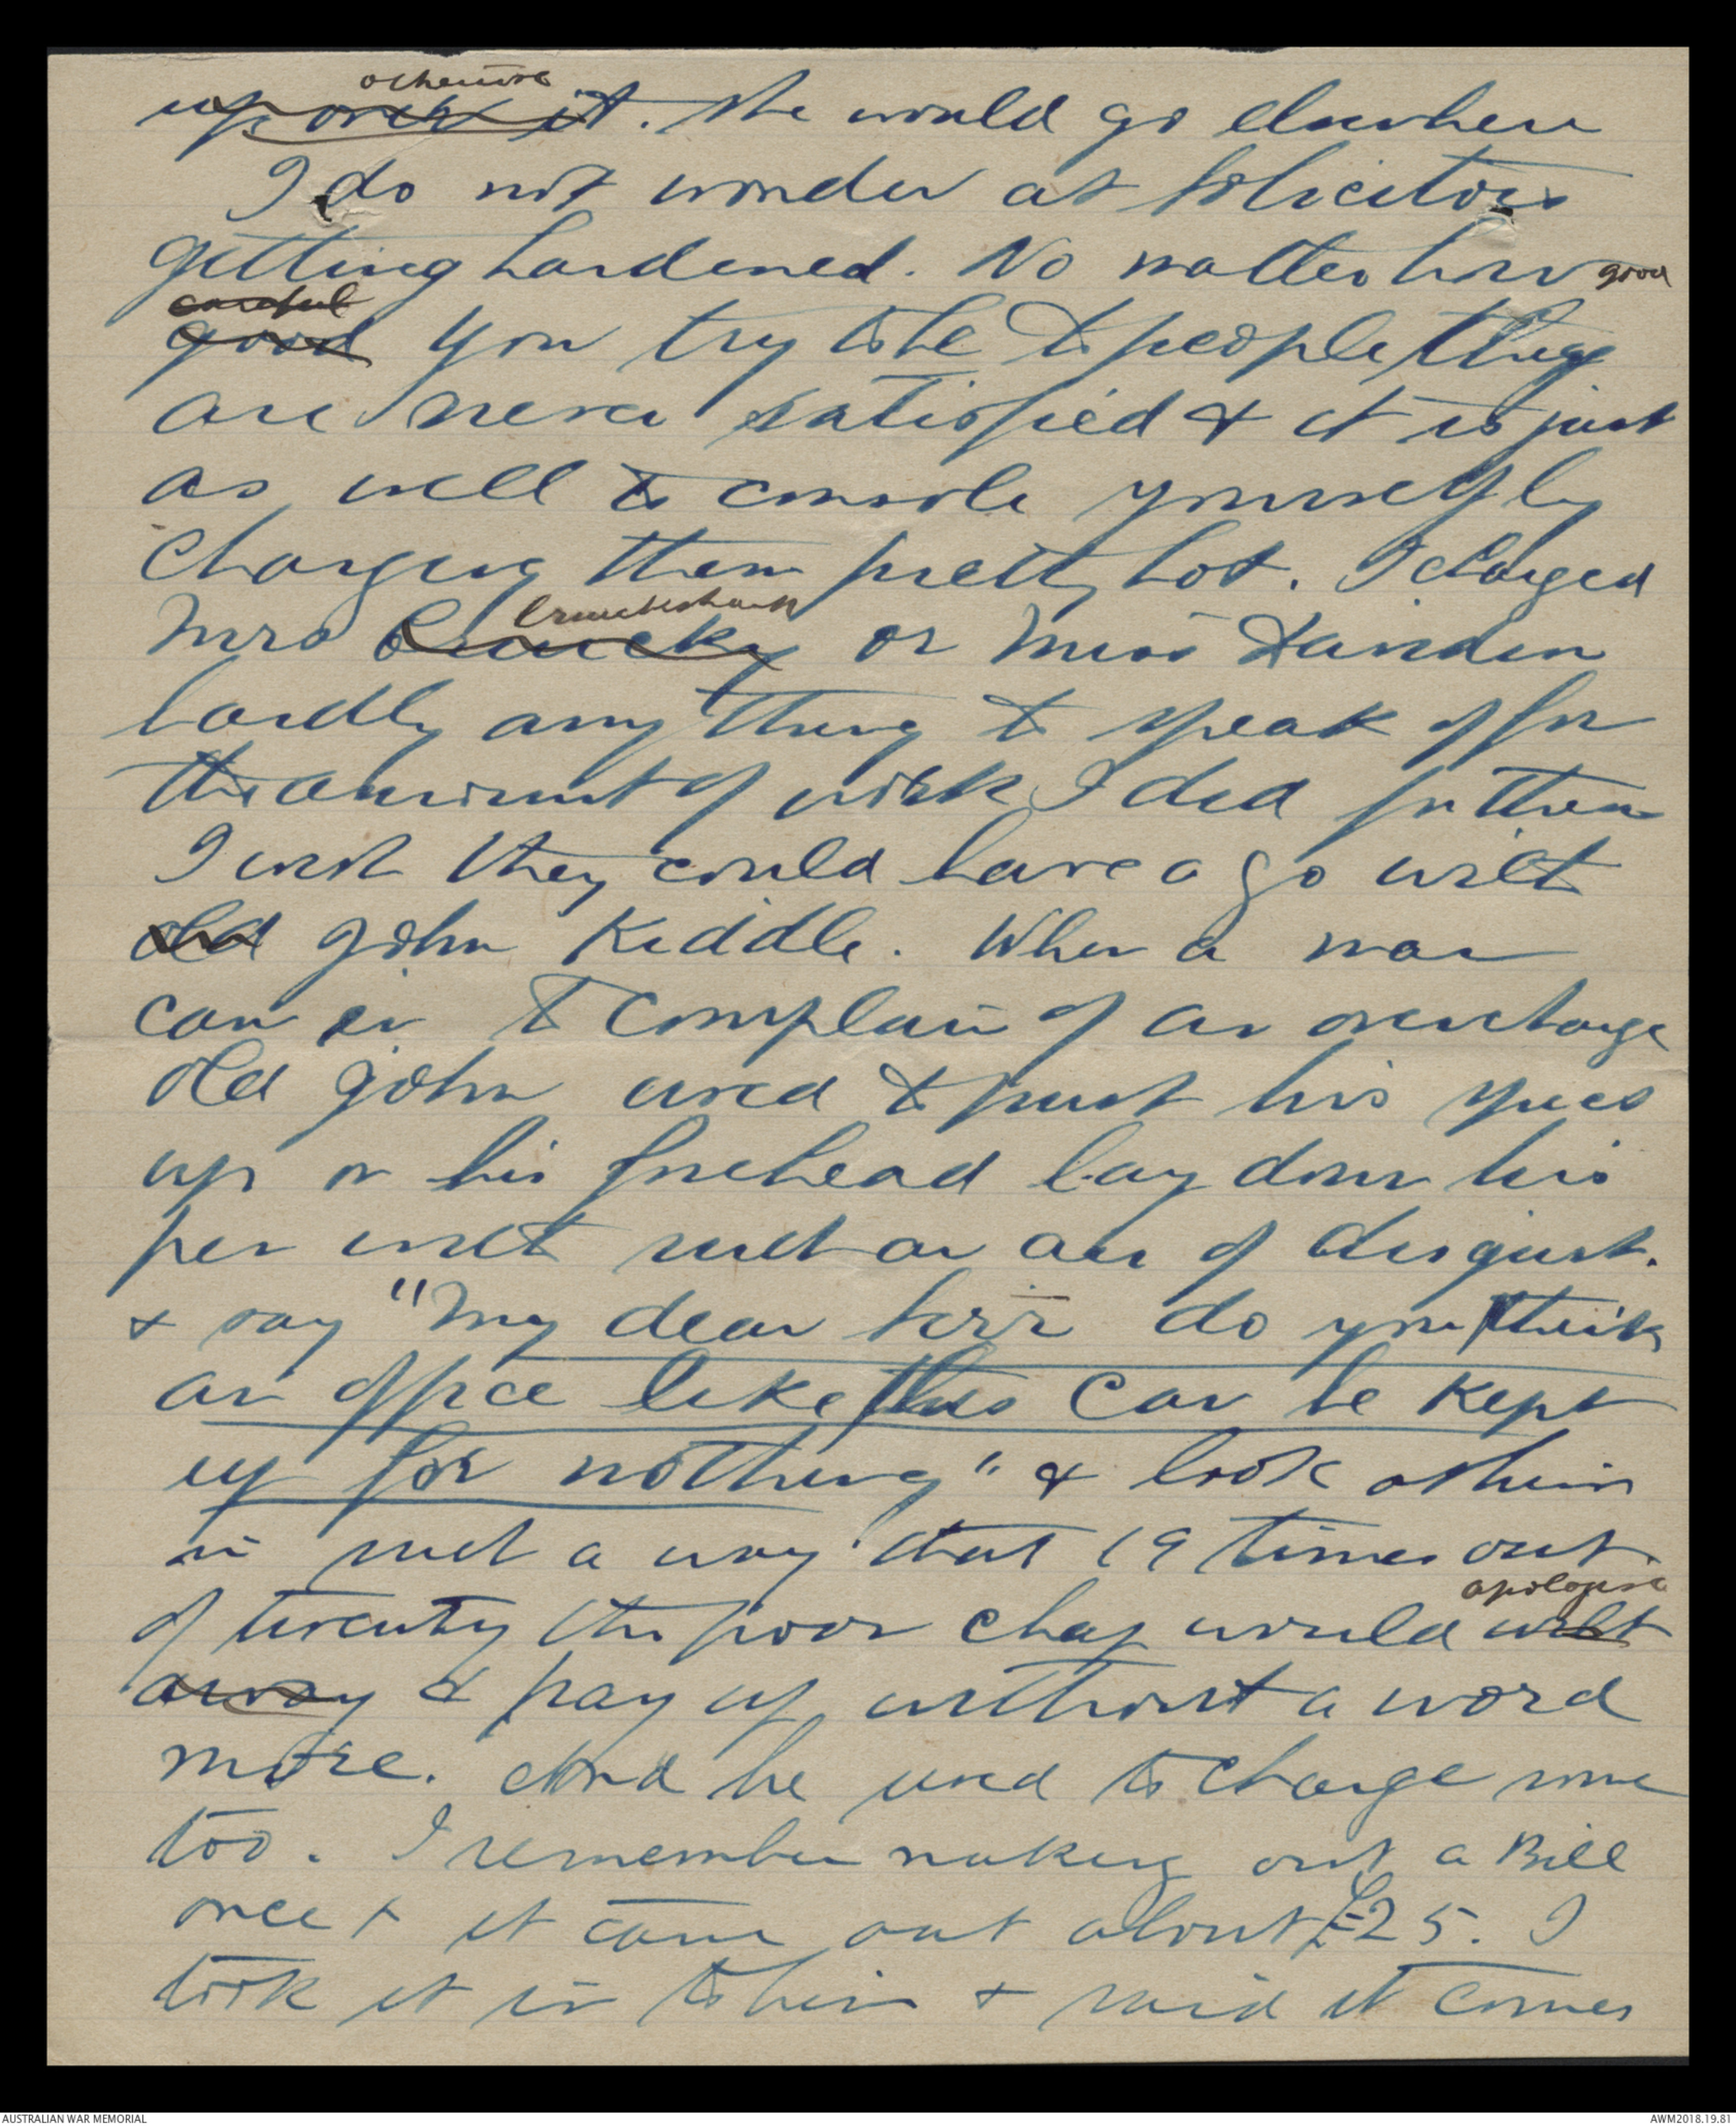 otherwise
up over it. She would go elsewhere
I do not wonder at solicitors
getting hardened. No matter how good
careful
good you try to be to people they
are never satisfied & it is just
as well to console yourself by
charging them pretty hot. I charged
Cruickshank
Mrs or Miss
hardly anything to speak of for
the amount of work I did for them
I wish they could have a go with
old John Kiddle. When a man
came in to complain of an overcharge
old John used to put his specs
up on his forehead lay down his
pen with such an air of disgust.
& say "My dear sir do you think
an office like this can be kept
up for nothing" & look at him
in such a way that 19 times out
apologise
of twenty the poor chap would wilt
away & pay up without a word
more. And he used to charge some
too. I remember making out a Bill
once & it came out about £25. I
took it in to him & said it comes
AUSTRALIAN WAR MEMORIAL
AWM2018.19.81